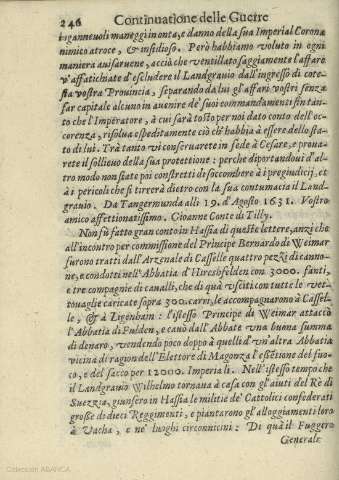 246 Continuatione delle Guerre
i ganneuoli maneggi in onta, e danno della sua Imperial Corona
nimico atroce, & insidioso. Però habbiamo voluto in ogni
maniera auisaruene, acciò che ventilato saggiamente l'affaro
v'affatichiate d'escludere il Landgrauio dall'ingresso di cote-
sta vostra Prouincia, separando da lui gl'affari vostri senza
far capitale alcuno in auenire de' suoi commandamenti fin tan-
to che l'Imperatore, à cui sarà tosto per noi dato conto dell'oc-
corenza, risolua espeditamente ciò ch'habbia à essere dello sta-
to di lui. Trà tanto vi conseruarete in fede à Cesare, e prouа-
rete il sollieuo della sua protettione: perche diportandoui d'al-
tro modo non siate poi constretti di soccombere à i pregiudicij, et
à i pericoli che si tirerà dietro con la sua contumacia il Land-
grauio. Da Tangermunda alli 19. d'Agosto 1631. Vostro
amico affettionatissimo. Gioanne Conte di Tilly.
Non fù fatto gran conto in Hassia di queste lettere, anzi che
all'incontro per commissione del Principe Bernardo di Weimar
furono tratti dall'Arzenale di Casselle quattro pezzi di canno-
ne, e condotti nell'Abbatia d'Hirchsfelden con 3000. fanti,
e tre compagnie di caualli, che di quà vsciti con tutte le vet-
touaglie caricate sopra 300. carri, le accompagnarono à Cassel-
le, & à Zigenhain: l'istesso Principe di Weimar attaccò
l'Abbatia di Fulden, e cauò dall'Abbate vna buona summa
di denaro, vendendo poco doppo à quelli d'vn'altra Abbatia
vicina di ragion dell'Elettore di Magonza l'essētione del fuo-
co, e del sacco per 12000. Imperiali. Nell'istesso tempo che
il Landgrauio Wilhelmo tornaua à casa con gl'aiuti del Rè di
Suezzia, giunsero in Hassia le militie de' Cattolici confederati
grosse di dieci Reggimenti, e piantarono gl'alloggiamenti loro
à Vacha, e ne' luoghi circonuicini: Di quà il Fuggero
Generale
Colección ABANCA